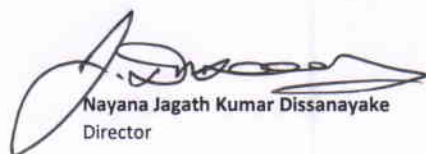 Nayana Jagath Kumar Dissanayake
Director